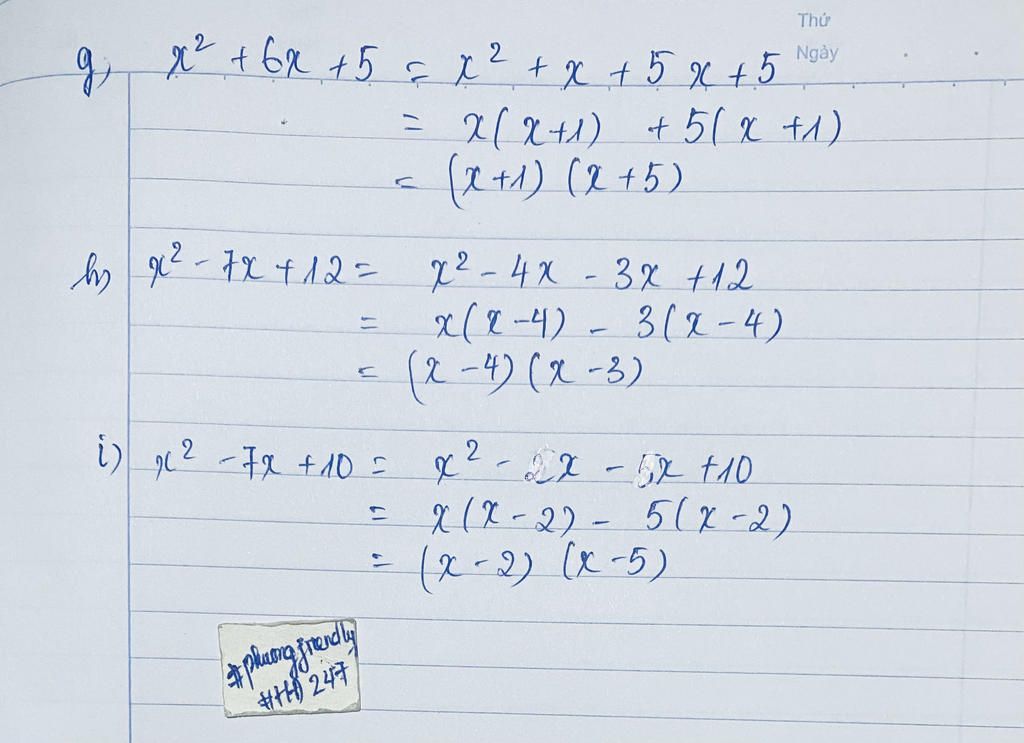 Thứ
Ngày
g, x² + 6x + 5 = x² + x + 5x + 5
= x(x+1) + 5(x+1)
= (x+1)(x+5)
h) x² - 7x + 12 = x² - 4x - 3x + 12
= x(x-4) - 3(x-4)
= (x-4)(x-3)
i) x² - 7x + 10 = x² - 2x - 5x + 10
= x(x-2) - 5(x-2)
= (x-2)(x-5)
#phuongfriendly
#HĐ 247